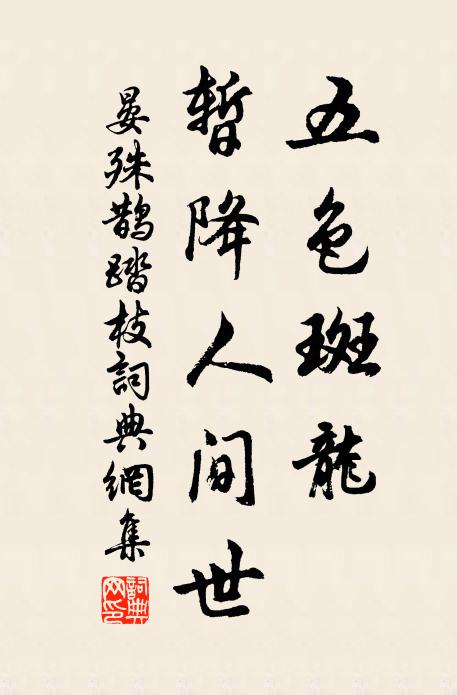 五色斑龍
暫降人间世
晏殊鵲踏枝詞典網集
詞典网印